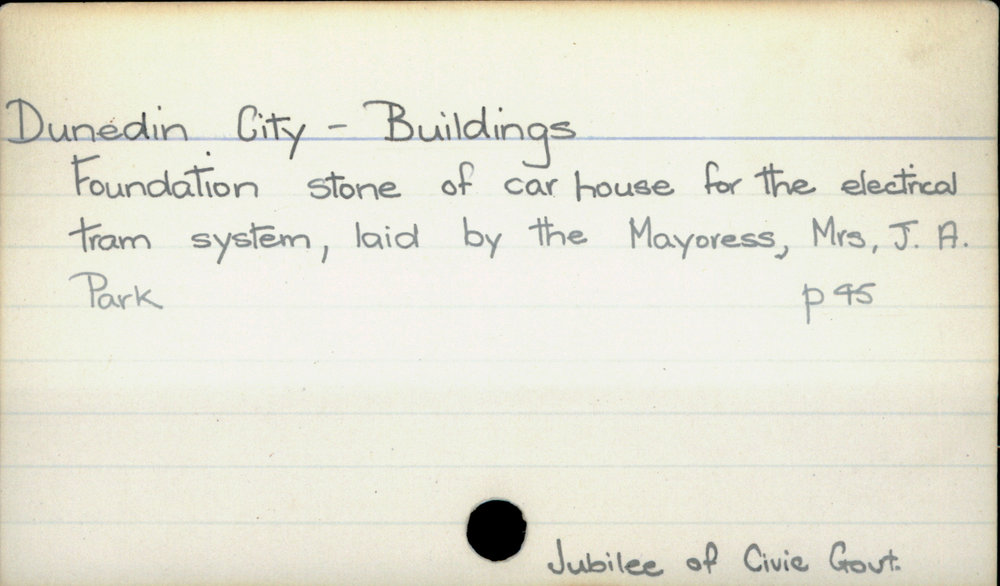 Dunedin City - Buildings
Foundation stone of car house for the electrical
tram system, laid by the Mayoress, Mrs, J. A.
Park p 45
Jubilee of Civic Govt.